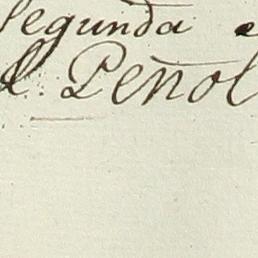 Segunda e
l Peñol